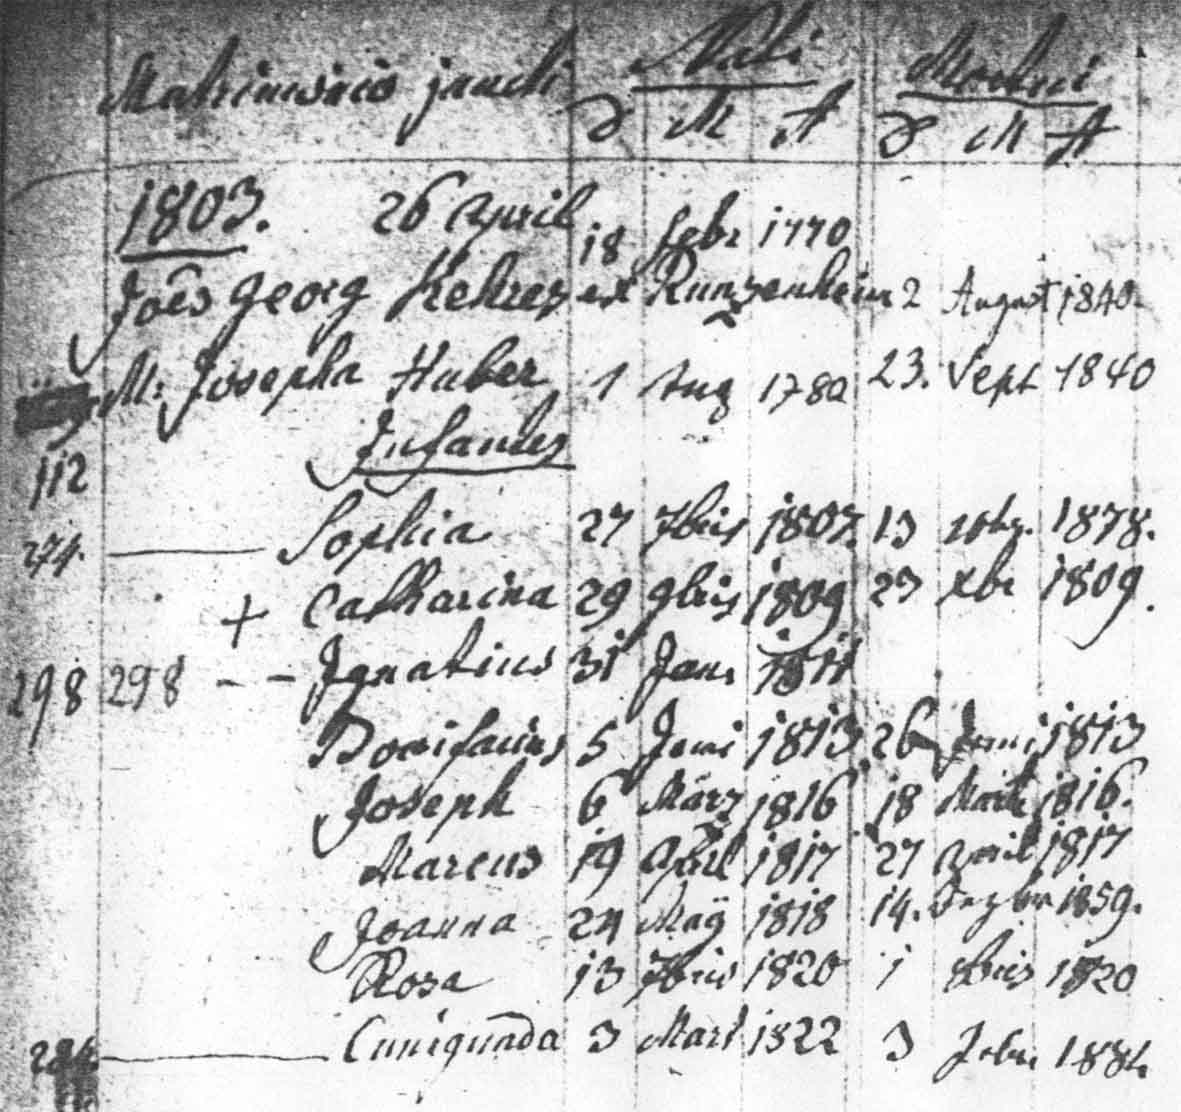 Matrimonio juncti Nati Mortui
D M A D M A
1803. 26 April 18 febr 1770
Joês Georg Kehrer ex Runzenheim 2 August 1840.
M: Josepha Huber 1 Aug 1780 23. Sept 1840
Infantes
112
274. Sophia 27 7bris 1807. 13 1878.
+ Catharina 29 9bris 1809 23 xbr 1809.
298 298 - - Ignatius 31 Jan. 1811
Bonifacius 5 Juni 1813 26 Juni 1813
Joseph 6 März 1816 18 Martii 1816.
Marcus 19 April 1817 27 April 1817
Joanna 24 Maÿ 1818 14. Dezbr 1859.
Rosa 13 7bris 1820 1 8bris 1820
284. Cunigunda 3 Mart 1822 3 Febr. 1884